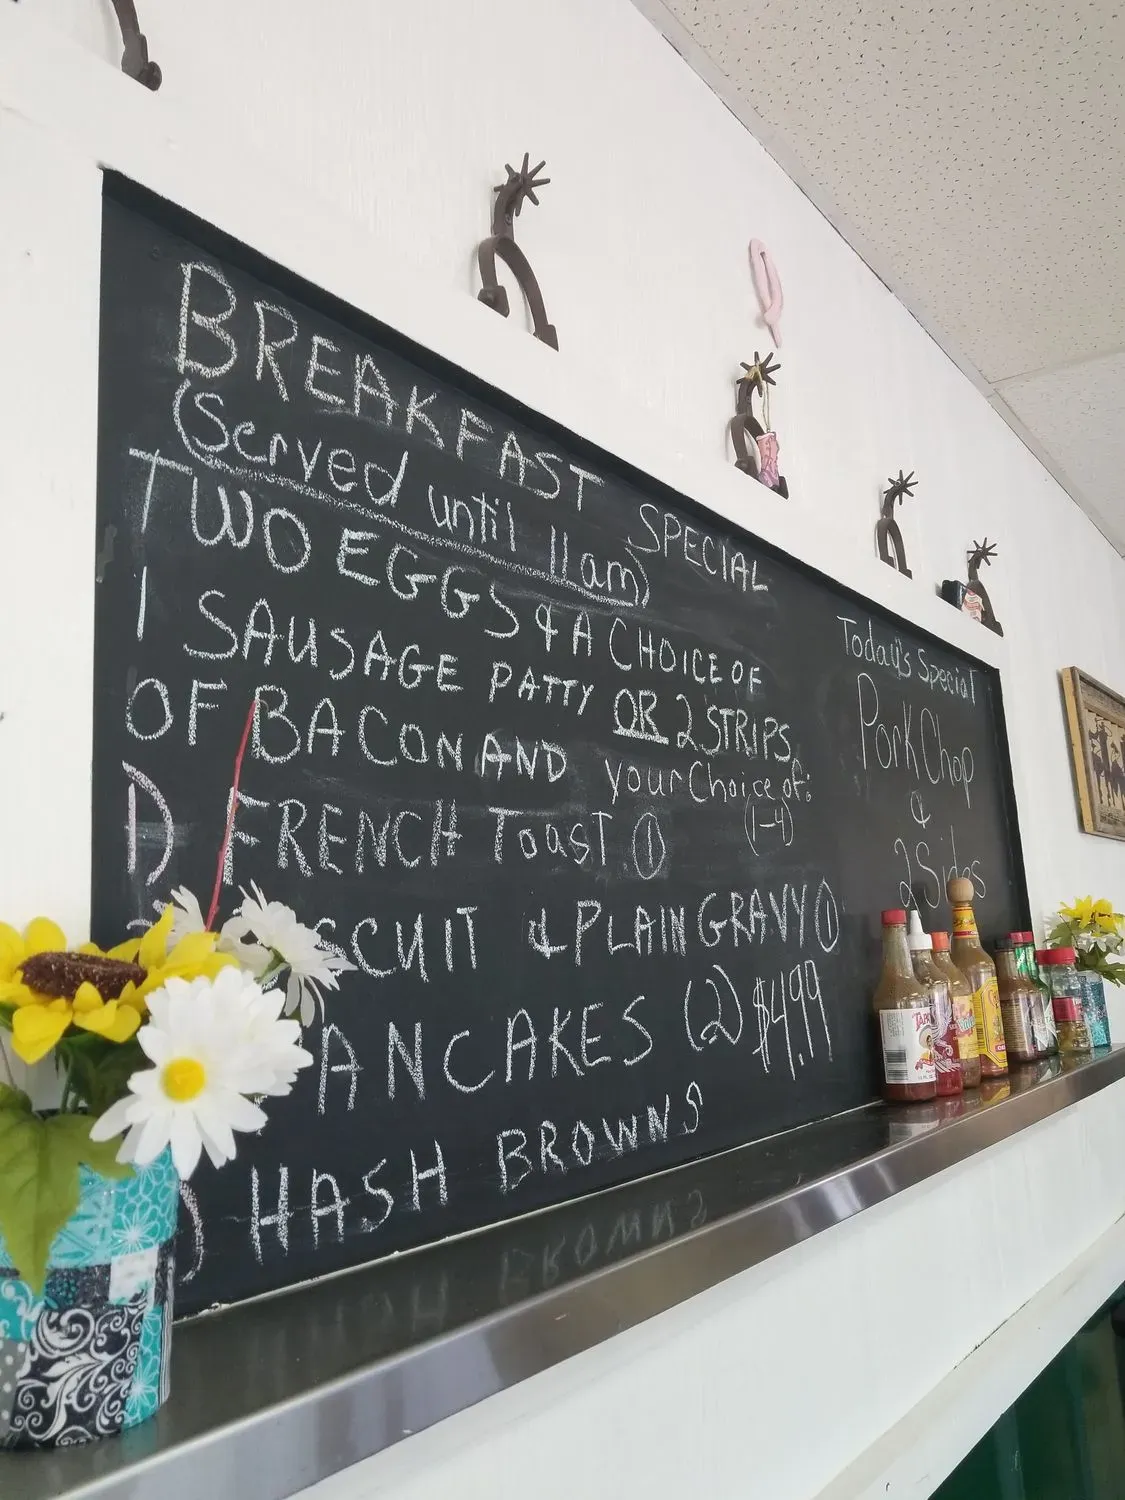 BREAKFAST SPECIAL
(Served until 11am)
TWO EGGS & A CHOICE OF
1 SAUSAGE PATTY OR 2 STRIPS
OF BACON AND your Choice of:
(1-4)
1) FRENCH TOAST (1)
SCUIT & PLAIN GRAVY (1)
ANCAKES (2) $4.99
) HASH BROWNS
Today's Special
Pork Chop
&
2 Sides